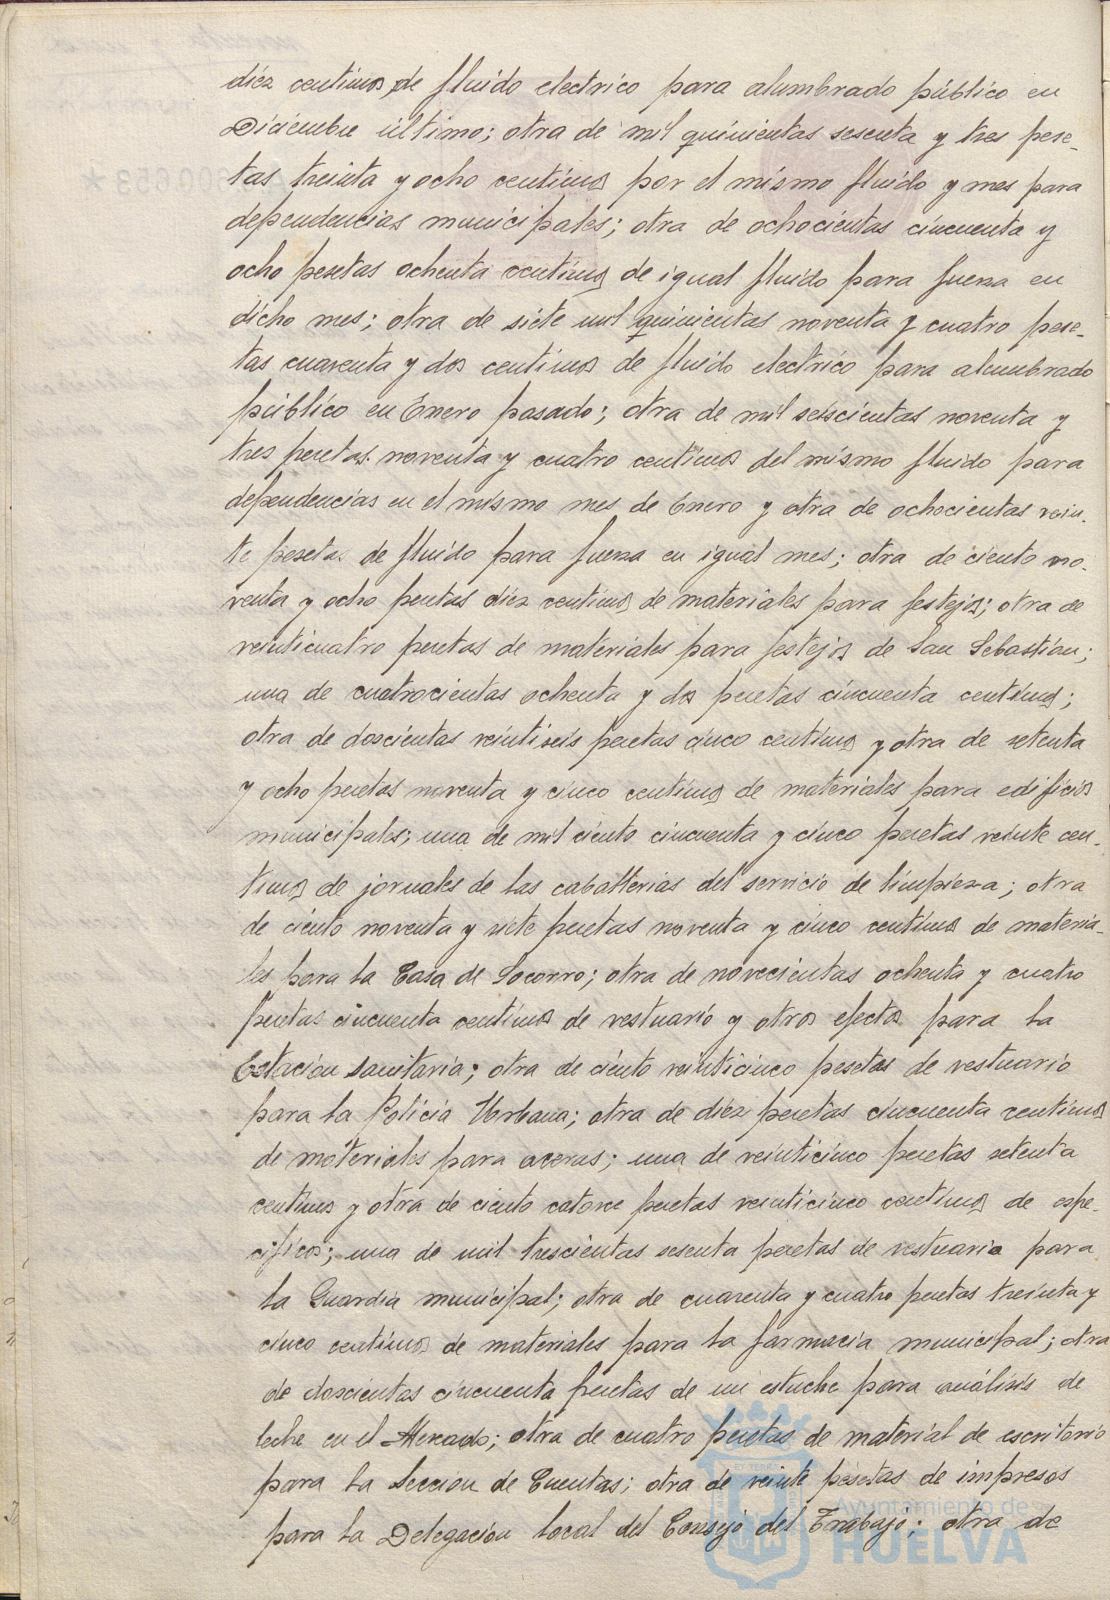 diéz centimos de fluido electrico para alumbrado público en
Diciembre último; otra de mil quinientas sesenta y tres pese-
tas treinta y ocho centimos por el mismo fluido y mes para
dependencias municipales; otra de ochocientas cincuenta y
ocho pesetas ochenta centimos de igual fluido para fuerza en
dicho mes; otra de siete mil quinientas noventa y cuatro pese-
tas cuarenta y dos centimos de fluido electrico para alumbrado
público en Enero pasado; otra de mil seiscientas noventa y
tres pesetas noventa y cuatro centimos del mismo fluido para
dependencias en el mismo mes de Enero y otra de ochocientas vein-
te pesetas de fluido para fuerza en igual mes; otra de ciento no-
venta y ocho pesetas diéz centimos de materiales para festejos; otra de
veinticuatro pesetas de materiales para festejos de San Sebastián;
una de cuatrocientas ochenta y dos pesetas cincuenta centimos;
otra de doscientas veintiseis pesetas cinco centimos y otra de setenta
y ocho pesetas noventa y cinco centimos de materiales para edificios
municipales; una de mil ciento cincuenta y cinco pesetas veinte cen-
timos de jornales de las caballerias del servicio de limpieza; otra
de ciento noventa y siete pesetas noventa y cinco centimos de materia-
les para la Casa de Socorro; otra de novecientas ochenta y cuatro
pesetas cincuenta centimos de vestuario y otros efectos para la
Estación sanitaria; otra de ciento veinticinco pesetas de vestuario
para la Policia Urbana; otra de diéz pesetas cincuenta centimos
de materiales para aceras; una de veinticinco pesetas setenta
centimos y otra de ciento catorce pesetas veinticinco centimos de espe-
cificos; una de mil trescientas sesenta pesetas de vestuario para
la Guardia municipal; otra de cuarenta y cuatro pesetas treinta y
cinco centimos de materiales para la farmacia municipal; otra
de doscientas cincuenta pesetas de un estuche para análisis de
leche en el Mercado; otra de cuatro pesetas de material de escritorio
para la Seccion de Cuentas; otra de veinte pesetas de impresos
para la Delegación local del Consejo del Trabajo; otra de
Ayuntamiento de
HUELVA